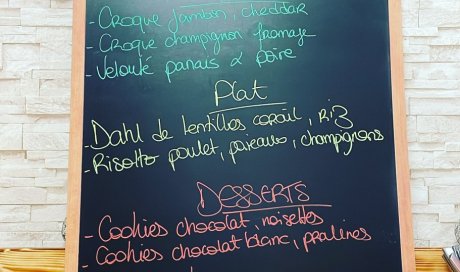 - Croque jambon, cheddar
- Croque champignon fromage
- Velouté panais & poire
Plat
- Dahl de lentilles corail, Riz
- Risotto poulet, poireaux, champignons
DESSERTS
- Cookies chocolat, noisettes
- Cookies chocolat blanc, pralines